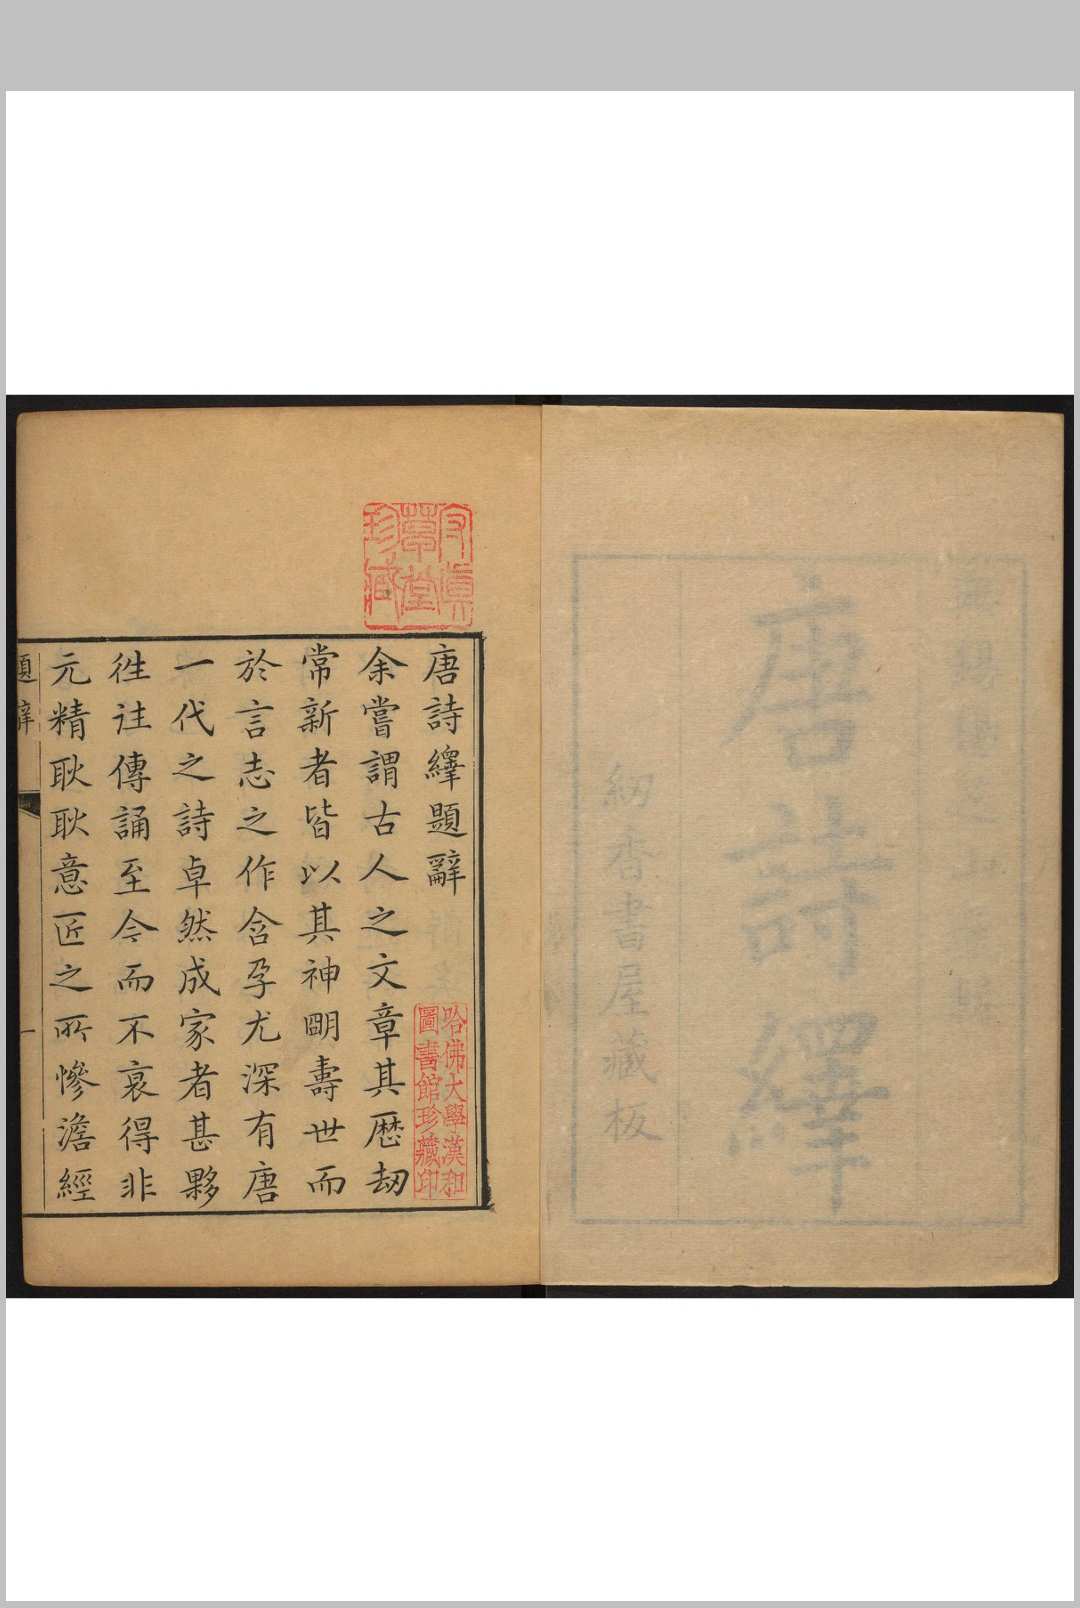 唐詩繹
紉香書屋藏板
唐詩繹題辭
余嘗謂古人之文章其歴劫
常新者皆以其神朙壽世而
於言志之作含孕尤深有唐
一代之詩卓然成家者甚夥
徃徃傳誦至今而不衰得非
元精耿耿意匠之所慘澹經
題辭
一
草堂
珍藏
哈佛大學漢和
圖書館珍藏印